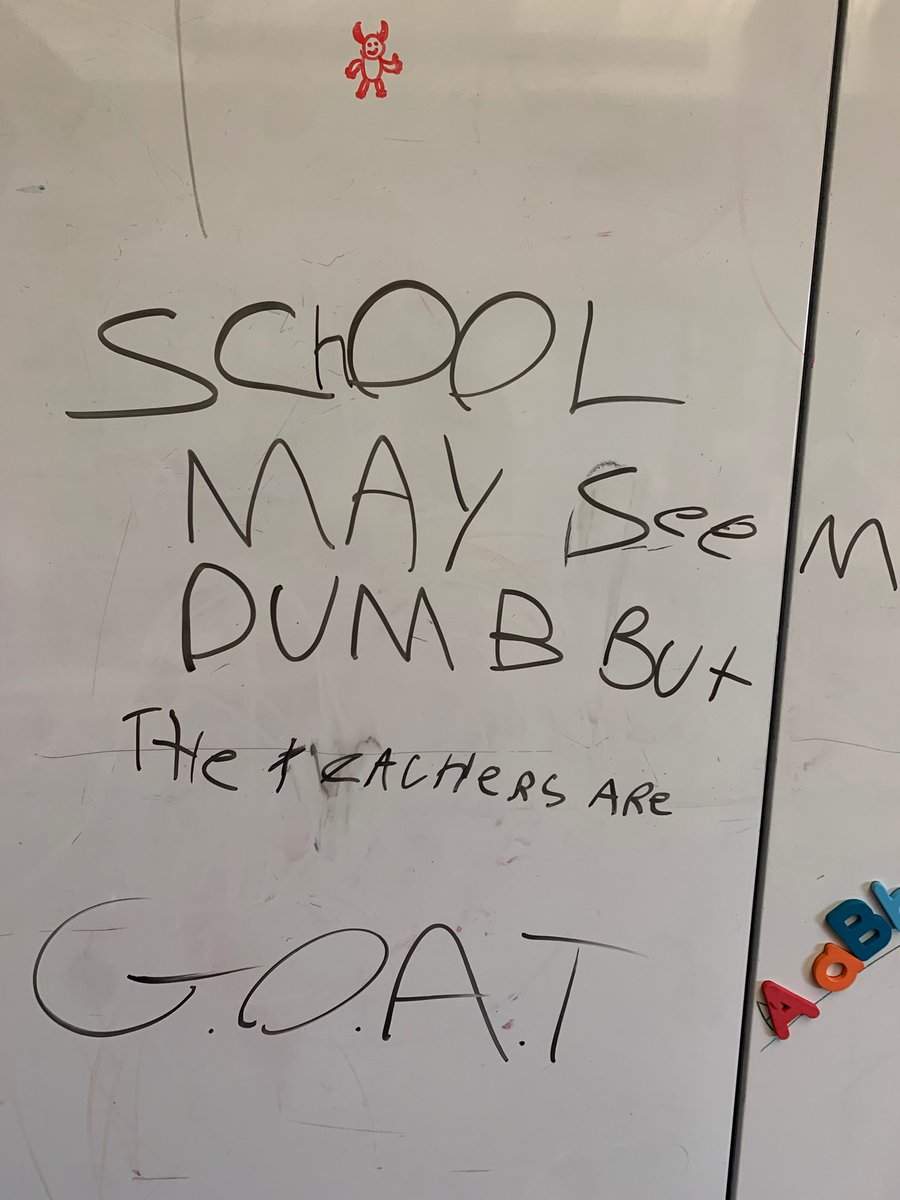 SChOOL
MAY SeeM
DUMB BUt
THe teACHeRS ARe
G.O.A.T
A a B b